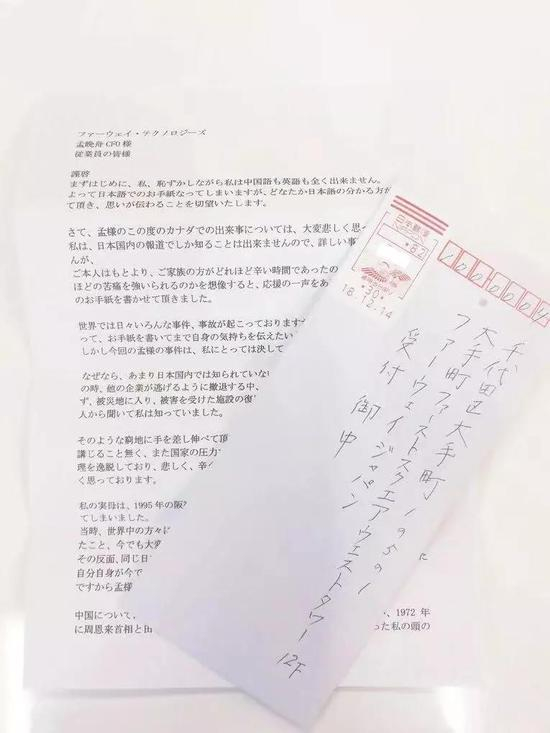 ファーウェイ・テクノロジーズ
孟晩舟 CFO 様
従業員の皆様
謹啓
まずはじめに、私、恥ずかしながら私は中国語も英語も全く出来ません。
よって日本語でのお手紙なってしまいますが、どなたか日本語の分かる方が
て頂き、思いが伝わることを切望いたします。
さて、孟様のこの度のカナダでの出来事については、大変悲しく思っ
私は、日本国内の報道でしか知ることは出来ませんので、詳しい事
んが、
ご本人はもとより、ご家族の方がどれほど辛い時間であったの
ほどの苦痛を強いられるのかを想像すると、応援の一声をあ
のお手紙を書かせて頂きました。
世界では日々いろんな事件、事故が起こっております
って、お手紙を書いてまで自身の気持ちを伝えたい
しかし今回の孟様の事件は、私にとっては決して
なぜなら、あまり日本国内では知られていない
の時、他の企業が逃げるように撤退する中、
ず、被災地に入り、被害を受けた施設の復
人から聞いて私は知っていました。
そのような窮地に手を差し伸べて頂
講じること無く、また国家の圧力
理を逸脱しており、悲しく、辛
く思っております。
私の実母は、1995 年の阪
てしまいました。
当時、世界中の方々に
たこと、今でも大変
その反面、同じ日
自分自身が今で
ですから孟様
中国について、
、1972 年
に周恩来首相と田
った私の頭の
日本郵便
*82
*30*
18.12.14
1000004
千代田区大手町
大手町ファーストスクエアウエストタワー 12F
ファーウェイジャパン
受付 御中